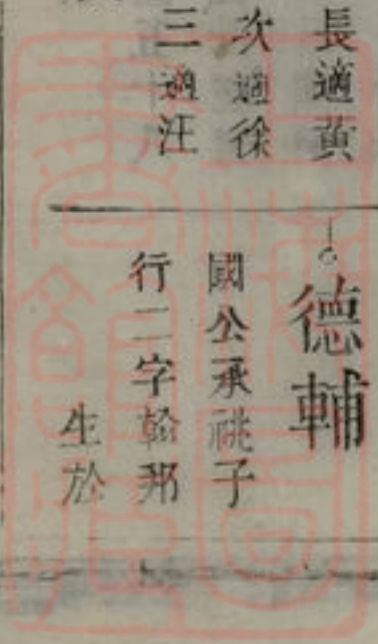 長適黄
次適徐
三適汪
德輔
國公承祧子
行二字翰邦
生於